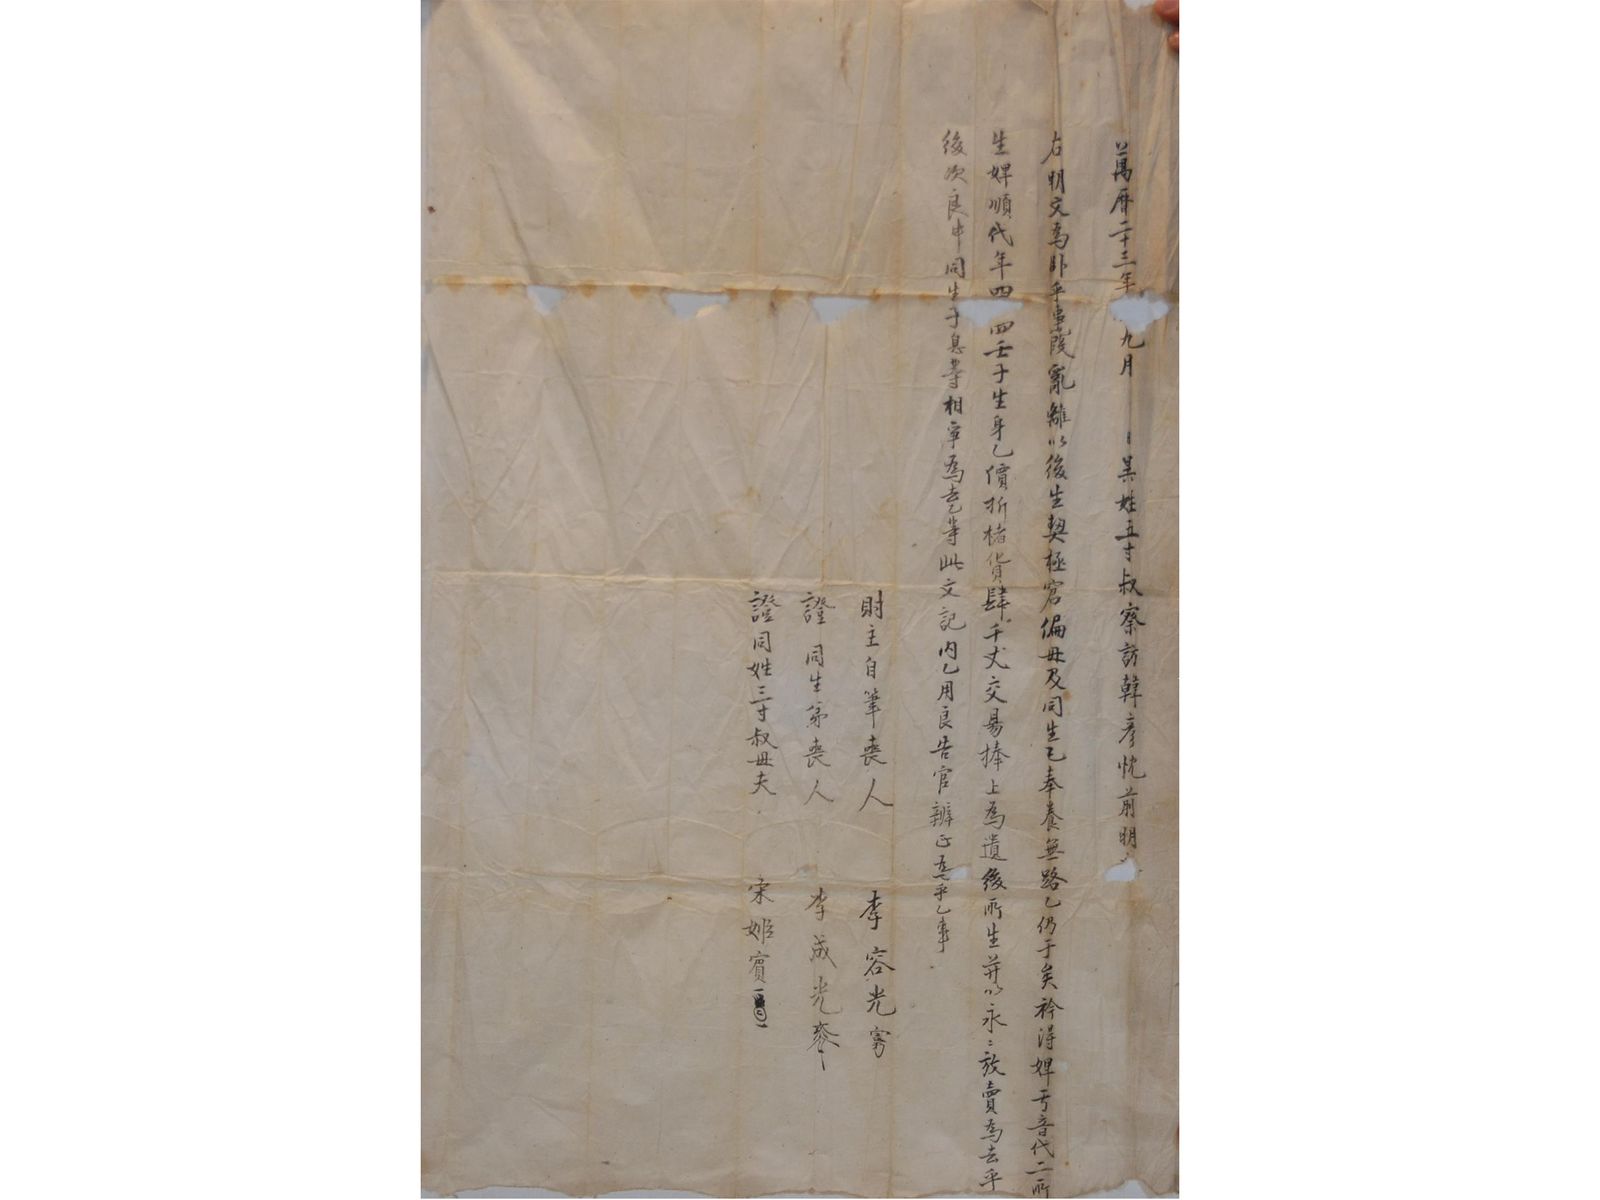 萬曆二十三年 九月 日異姓五寸叔察訪韓彥忱前明
右明文爲卧乎事段亂離以後生契極窘偏母及同生乙奉養無路乙仍于矣衿得婢亏音代二所
生婢順代年四 四壬子生身乙價折楮貨肆千丈交易捧上爲遣後所生幷以永〻放賣爲去乎
後次良中同生子息等相爭爲去乙等此文記內乙用良告官辨正爲乎乙事
財主自筆喪人 李容光
證同生弟喪人 李成光
證同姓三寸叔母夫 宋姬賓